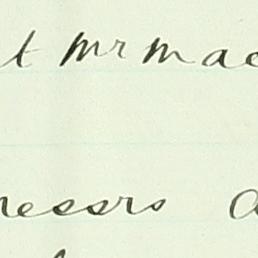 t Mr Mac
ressrs a